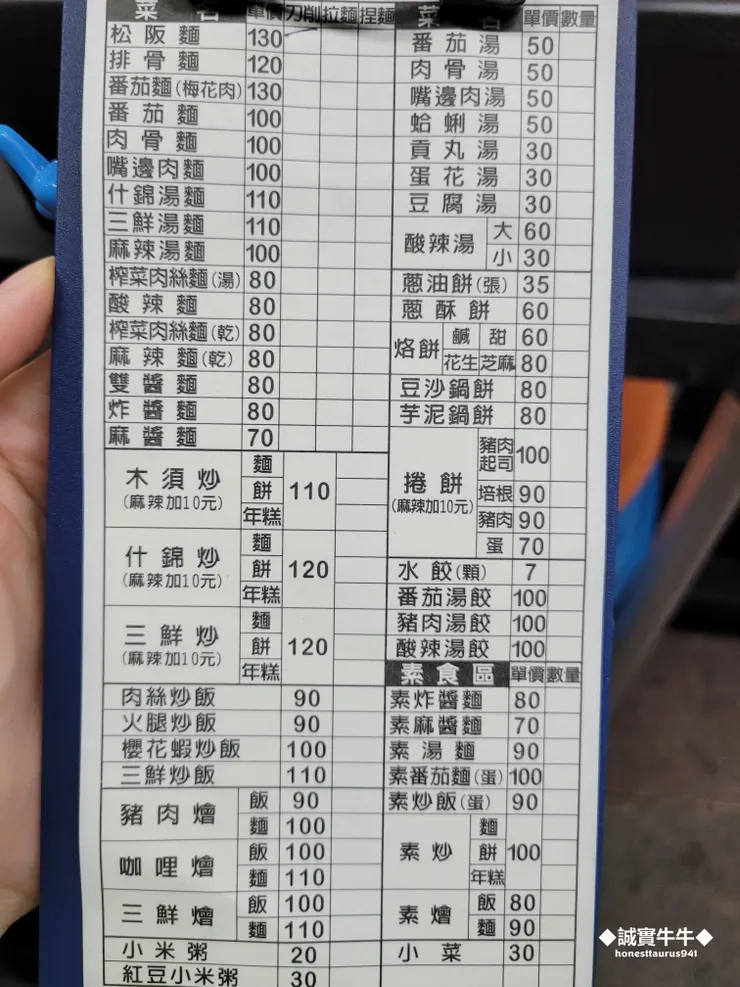 菜名 單價 刀削 拉麵 捏麵
松阪麵 130
排骨麵 120
番茄麵(梅花肉) 130
番茄麵 100
肉骨麵 100
嘴邊肉麵 100
什錦湯麵 110
三鮮湯麵 110
麻辣湯麵 100
榨菜肉絲麵(湯) 80
酸辣麵 80
榨菜肉絲麵(乾) 80
麻辣麵(乾) 80
雙醬麵 80
炸醬麵 80
麻醬麵 70
木須炒 麵 餅 年糕 110
(麻辣加10元)
什錦炒 麵 餅 年糕 120
(麻辣加10元)
三鮮炒 麵 餅 年糕 120
(麻辣加10元)
肉絲炒飯 90
火腿炒飯 90
櫻花蝦炒飯 100
三鮮炒飯 110
豬肉燴 飯 90
麵 100
咖哩燴 飯 100
麵 110
三鮮燴 飯 100
麵 110
小米粥 20
紅豆小米粥 30
菜名 單價 數量
番茄湯 50
肉骨湯 50
嘴邊肉湯 50
蛤蜊湯 50
貢丸湯 30
蛋花湯 30
豆腐湯 30
酸辣湯 大 60
小 30
蔥油餅(張) 35
蔥酥餅 60
烙餅 鹹 甜 60
花生 芝麻 80
豆沙鍋餅 80
芋泥鍋餅 80
捲餅 豬肉起司 100
(麻辣加10元) 培根 90
豬肉 90
蛋 70
水餃(顆) 7
番茄湯餃 100
豬肉湯餃 100
酸辣湯餃 100
素食區 單價 數量
素炸醬麵 80
素麻醬麵 70
素湯麵 90
素番茄麵(蛋) 100
素炒飯(蛋) 90
素炒 麵 餅 年糕 100
素燴 飯 80
麵 90
小菜 30
◆誠實牛牛◆
honesttaurus941